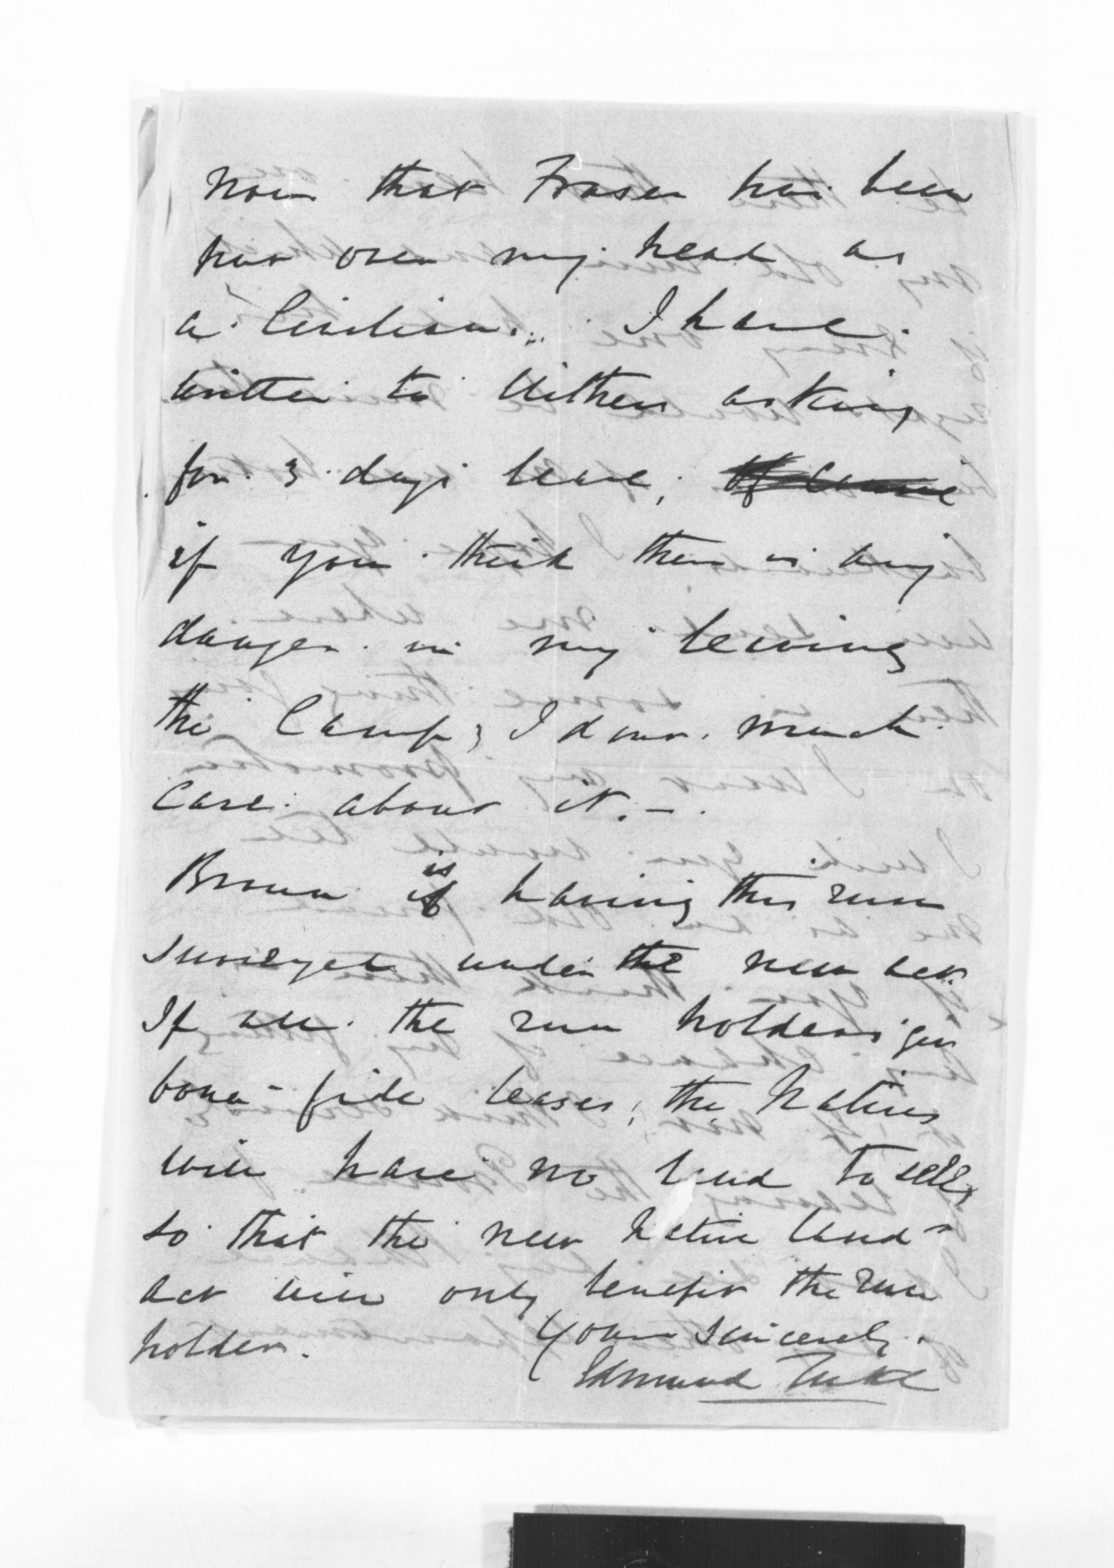 Now that Fraser has been
put over my head as
a Civilian. I have
written to Withers asking
for 3 days leave,
if you think there is any
danger in my leaving
the Camp; I dont much
care about it. —
Brown is having this run
surveyed under the new act.
If all the run holders get
bona-fide leases, the Natives
will have no land to sell,
so that the new Native land
act will only benefit the run
holder.
Yours sincerely
Edmund Tuke